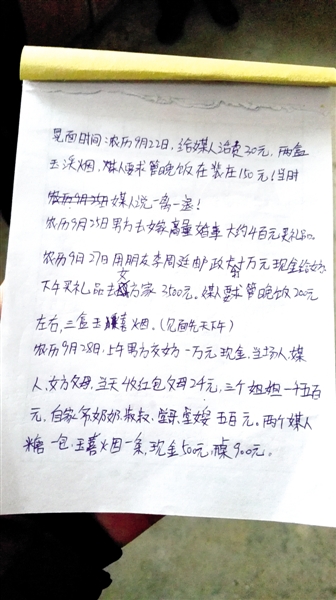 见面时间:农历9月22日,给媒人治费30元,两盒
玉溪烟,媒人要求管晚饭在 150元(当时
媒人说一离一退!
农历9月25日男方去 家商量婚事大约4百元买礼品。
农历9月27日用朋友李周廷邮政 十万元现金给
下午买礼品去女方家3500元。媒人要求管晚饭200元
左右,三盒玉喜烟。(见面先天下午)
农历9月28日,上午男方交女方一万元现金,当场人,媒
人,女方父母,当天收红包父母24元,三个姐姐一千五百
元,自家爷奶奶,叔叔, 五百元。两个媒人
糖一包,玉喜烟一条,现金50元, 900元。